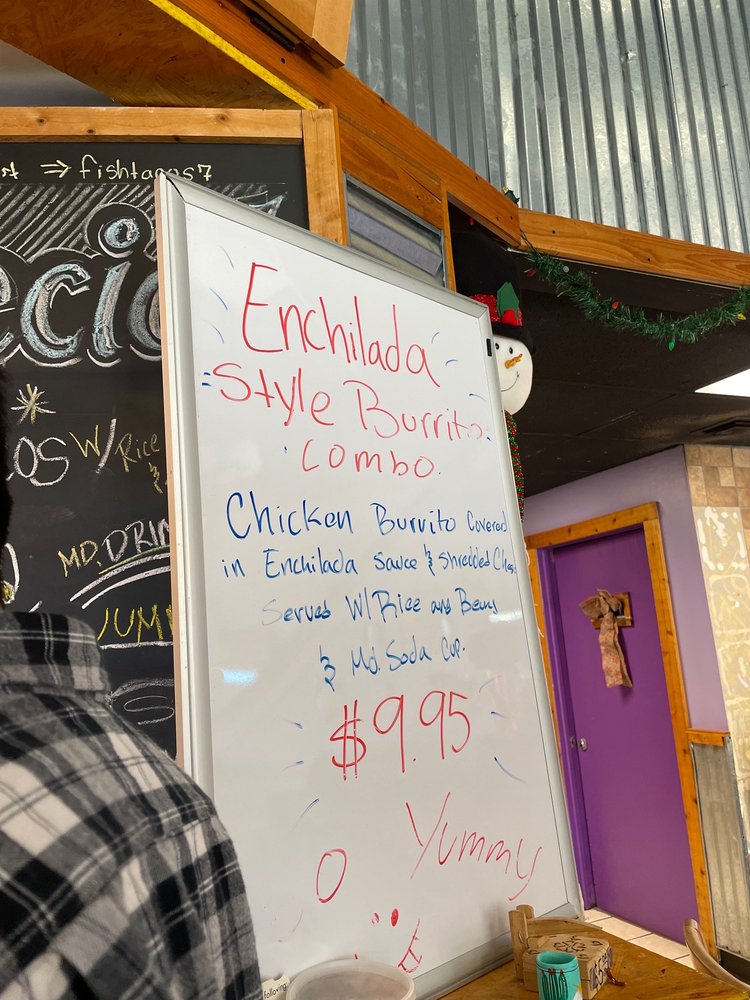 ⇒ fishtacos7
Enchilada
Style Burrito
Combo
Chicken Burrito Covered
in Enchilada Sauce & Shredded
Served W/ Rice and Beans
& Md. Soda Cup.
$9.95
Yummy
W/ Rice
&
MD. DRIN
JUM
following